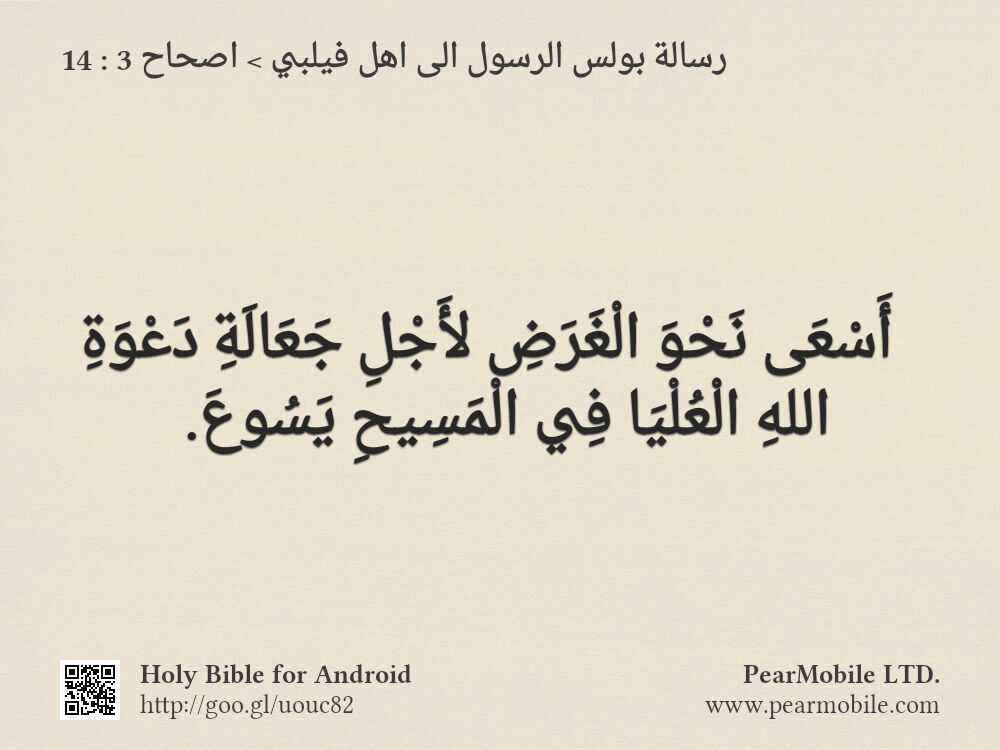 رسالة بولس الرسول الى اهل فيلبي > اصحاح 3 : 14
أَسْعَى نَحْوَ الْغَرَضِ لأَجْلِ جَعَالَةِ دَعْوَةِ
اللهِ الْعُلْيَا فِي الْمَسِيحِ يَسُوعَ.
Holy Bible for Android
http://goo.gl/uouc82
PearMobile LTD.
www.pearmobile.com